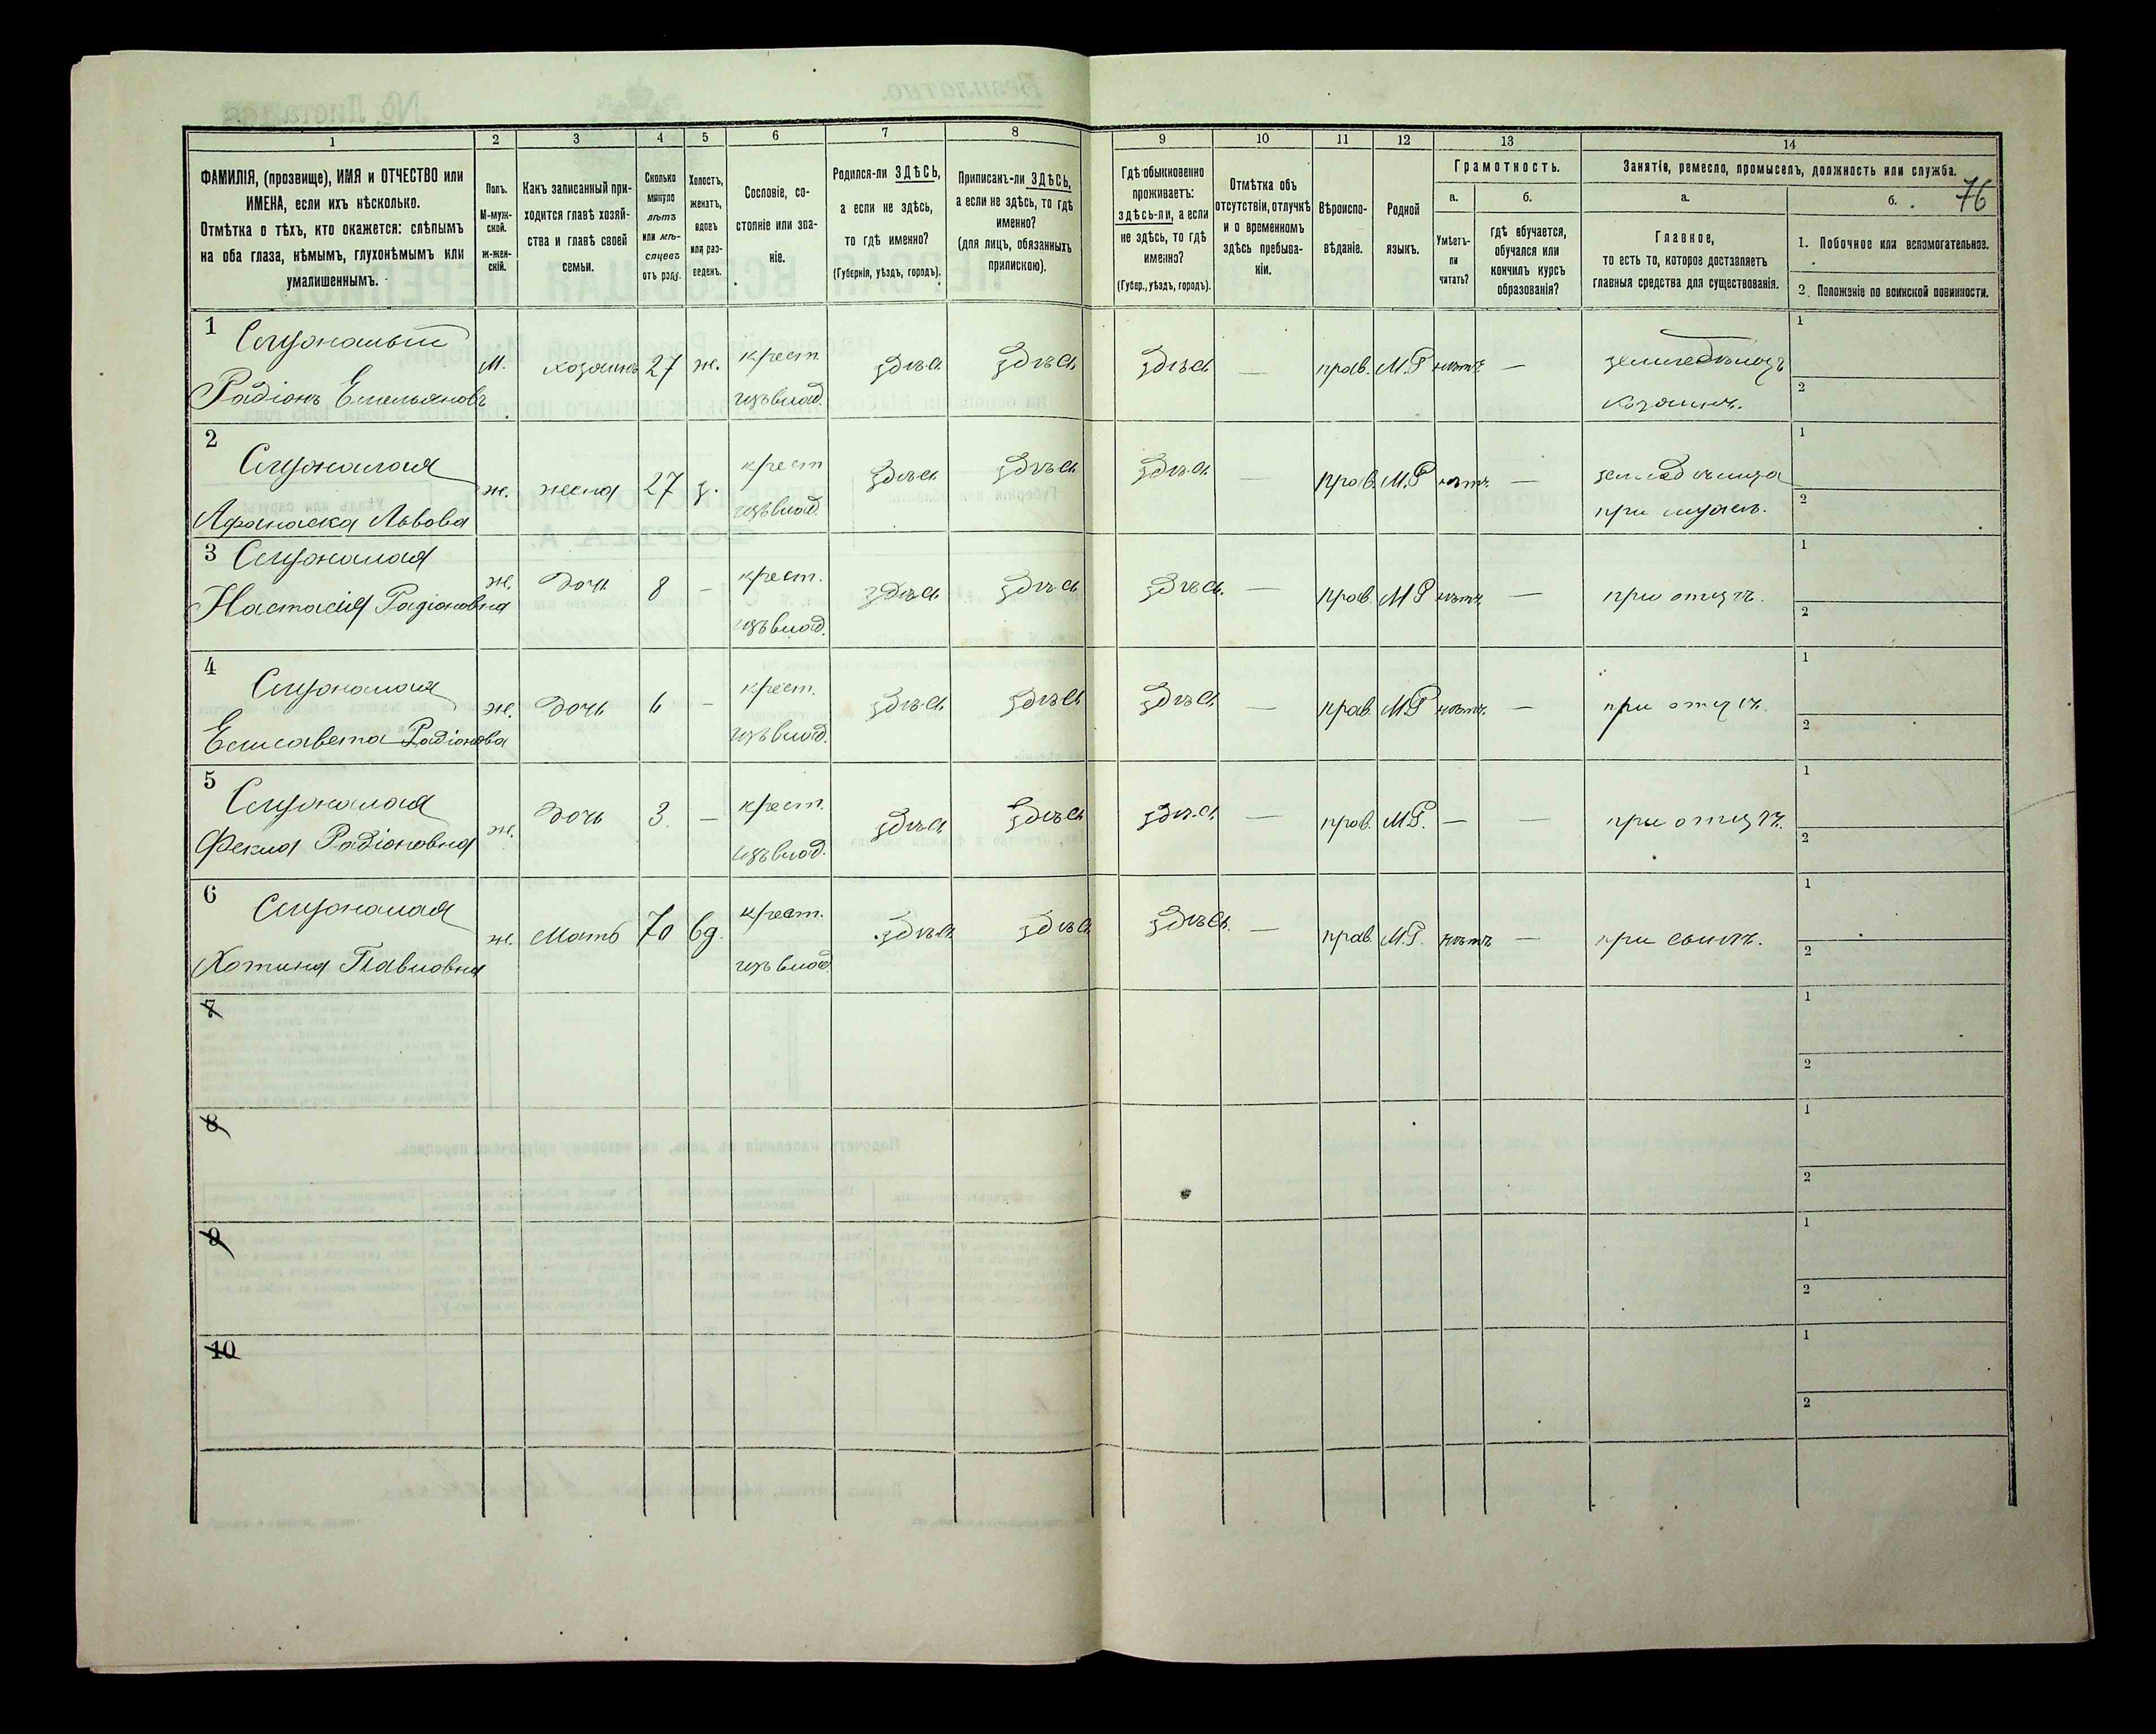 76
1 2 3 4 5 6 7 8 9 10 11 12 13 14
ФАМИЛІЯ, (прозвище), ИМЯ и ОТЧЕСТВО или
ИМЕНА, если ихъ нѣсколько.
Отмѣтка о тѣхъ, кто окажется: слѣпымъ
на оба глаза, нѣмымъ, глухонѣмымъ или
умалишеннымъ.
Полъ.
М-муж-
ской.
ж-жен-
скій.
Какъ записанный при-
ходится главѣ хозяй-
ства и главѣ своей
семьи.
Сколько
минуло
лѣтъ
или мѣ-
сяцевъ
отъ роду.
Холостъ,
женатъ,
вдовъ
или раз-
веденъ.
Сословіе, со-
стояніе или зва-
ніе.
Родился-ли ЗДѢСЬ,
а если не здѣсь,
то гдѣ именно?
(Губернія, уѣздъ, городъ).
Приписанъ-ли ЗДѢСЬ,
а если не здѣсь, то гдѣ
именно?
(для лицъ, обязанныхъ
припискою).
Гдѣ обыкновенно
проживаетъ:
здѣсь-ли, а если
не здѣсь, то гдѣ
именно?
(Губер., уѣздъ, городъ).
Отмѣтка объ
отсутствіи, отлучкѣ
и о временномъ
здѣсь пребыва-
ніи.
Вѣроиспо-
вѣданіе.
Родной
языкъ.
Грамотность.
а.
Умѣетъ-
ли
читать?
б.
гдѣ обучается,
обучался или
кончилъ курсъ
образованія?
Занятія, ремесло, промыселъ, должность или служба.
а.
Главное,
то есть то, которое доставляетъ
главныя средства для существованія.
б.
1. Побочное или вспомогательное.
2. Положеніе по воинской повинности.
1
Радіонъ Емельяновъ
М. хозяинъ 27 ж. крест. здѣсь здѣсь здѣсь — прав. М.Р нѣтъ — земледѣлецъ
хозяинъ.
1
2
2
Афанаска Львова
ж. жена 27 з. крест здѣсь здѣсь здѣсь — прав. М.Р нѣтъ —
при мужѣ.
1
2
3
Настасія Радіоновна
ж. дочь 8 — крест. здѣсь здѣсь здѣсь — прав. М Р нѣтъ — при отцѣ.
1
2
4
Елисавета Радіонова
ж. дочь 6 — крест. здѣсь здѣсь здѣсь — прав. М.Р нѣтъ — при отцѣ.
1
2
5
Фекла Радіоновна
ж. дочь 3. — крест. здѣсь здѣсь здѣсь — прав. М.Р. — — при отцѣ.
1
2
6
Хотина Павловна
ж. Мать 70 вд. крест. здѣсь здѣсь здѣсь — прав. М.Р. нѣтъ — при сынѣ.
1
2
7
1
2
8
1
2
9
1
2
10
1
2